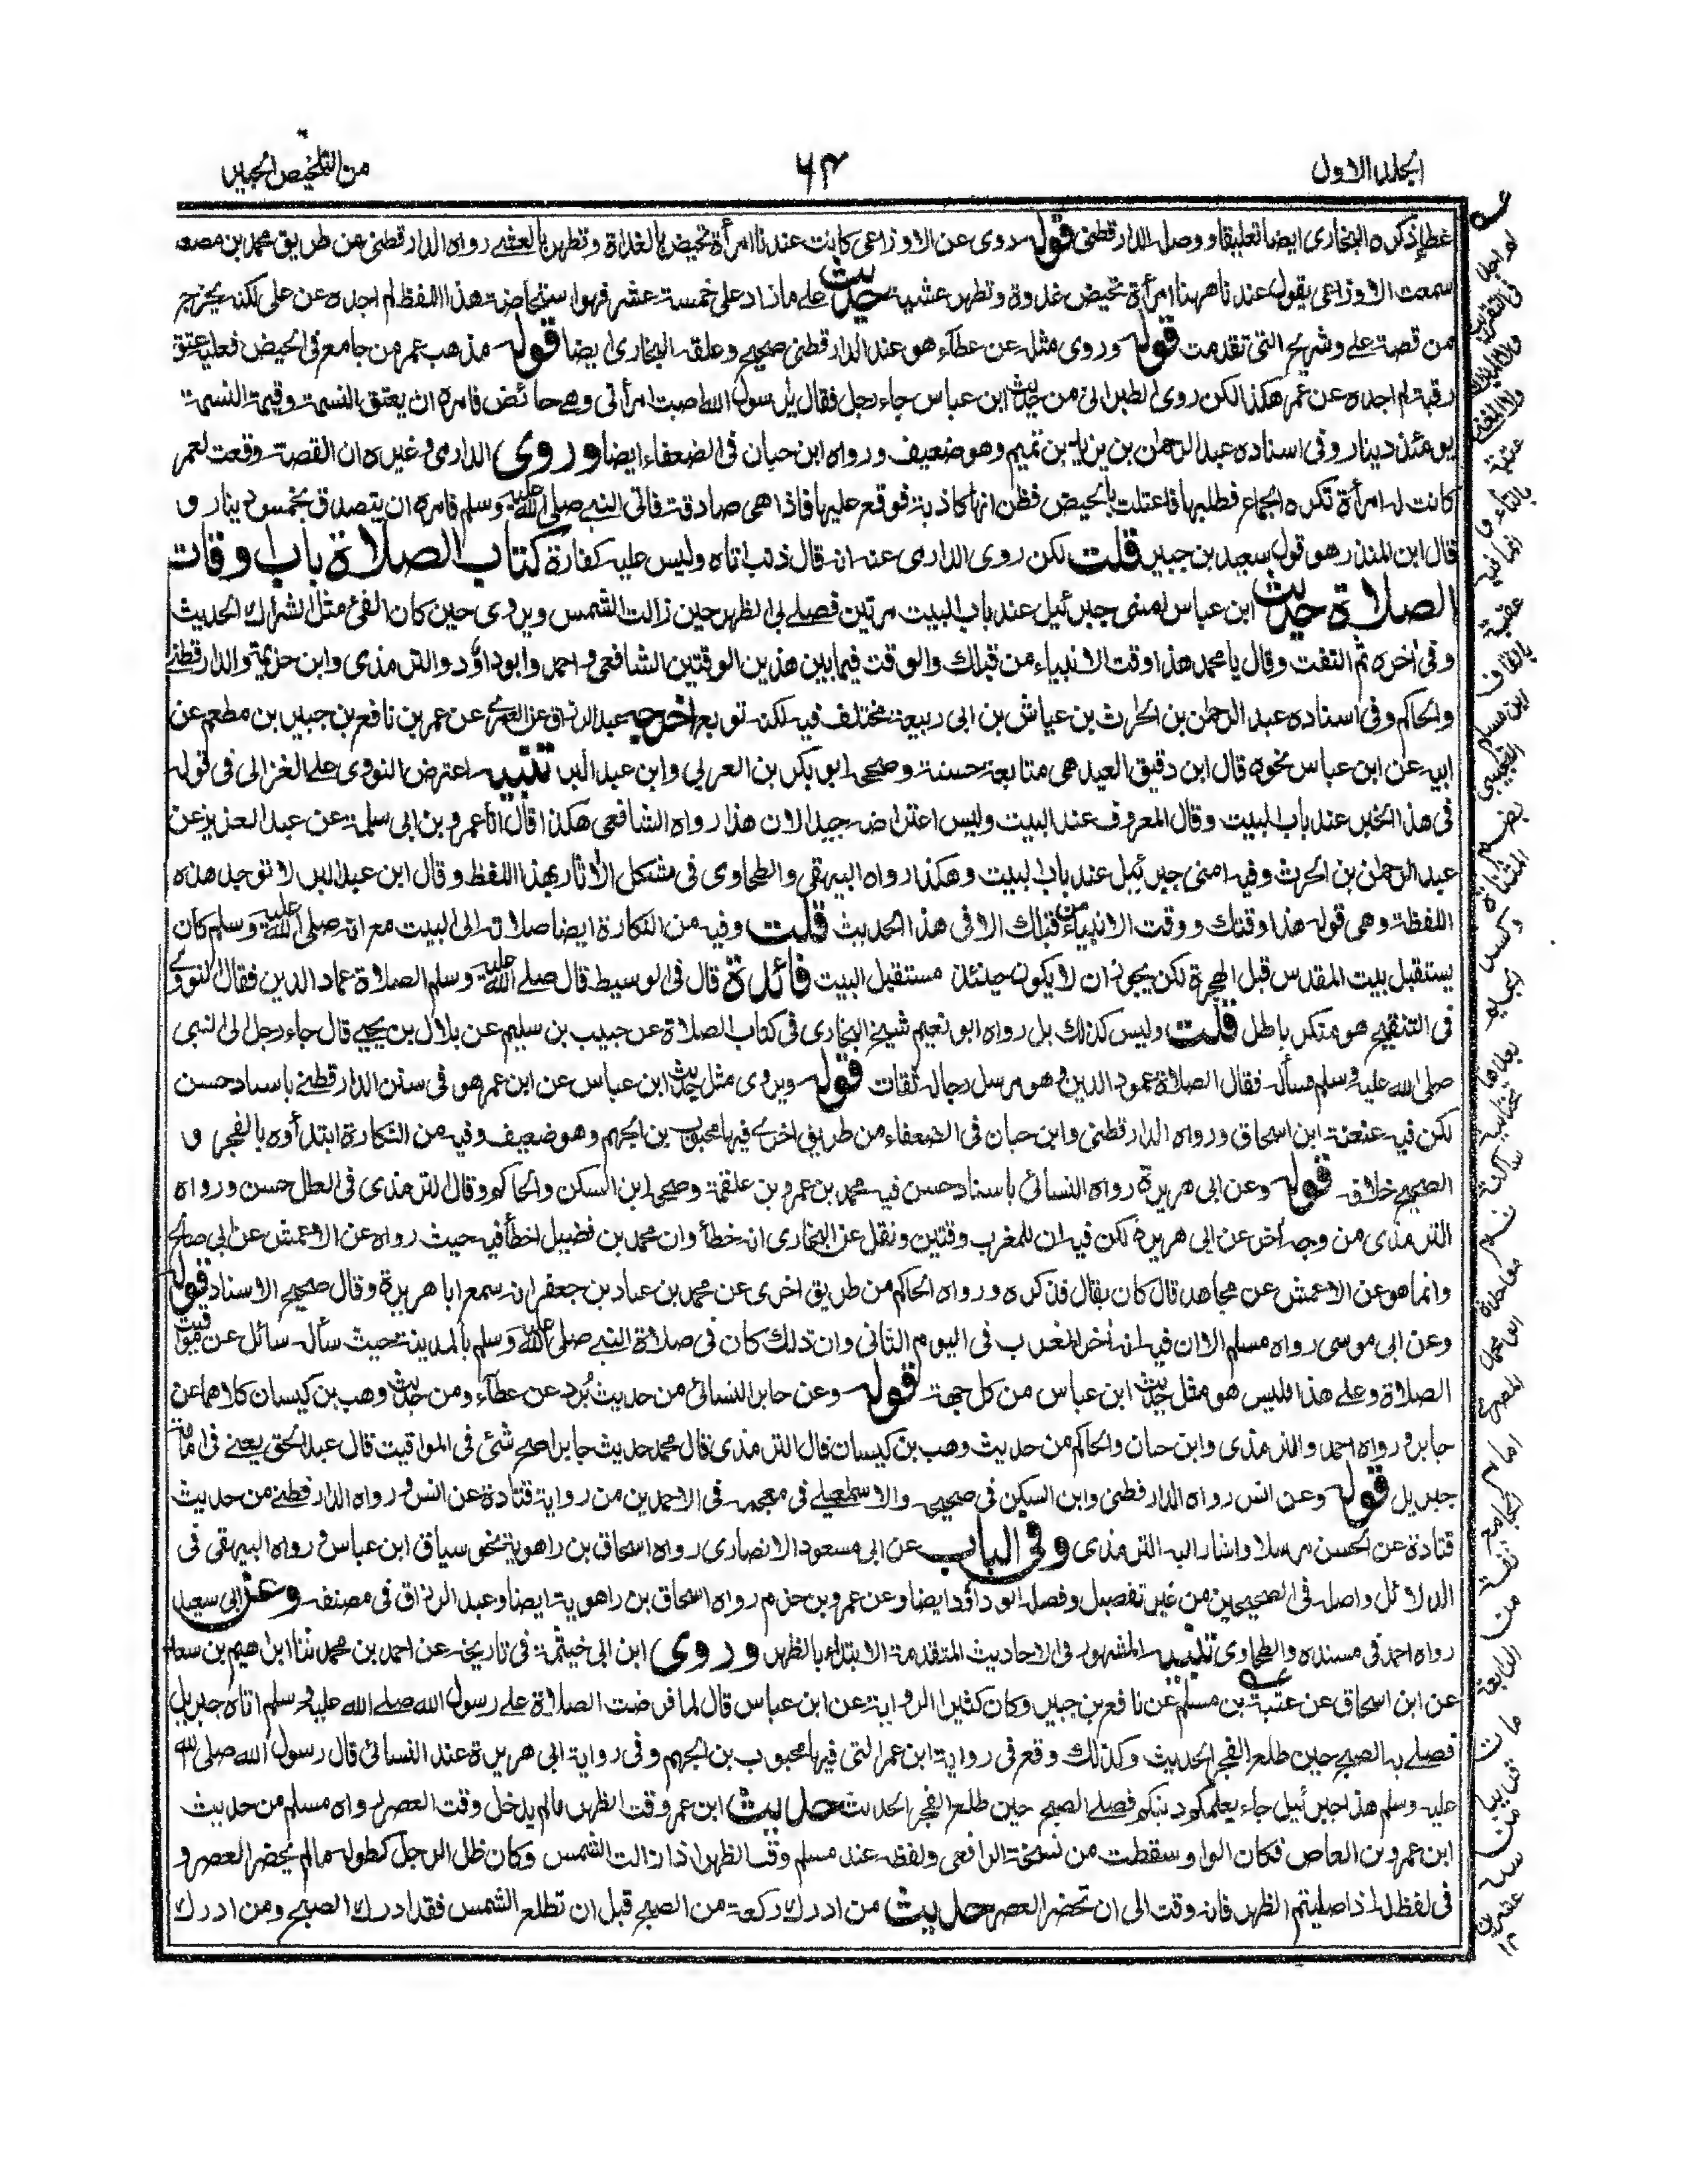 الجلد الاول
٦٣
من التلخيص الحبير
عطاء ذكره البخارى ايضا تعليقا ووصله الدارقطنى قوله روى عن الاوزاعى كانت عندنا امرأة تحيض بالغداة وتطهر بالعشے رواه الدارقطنى من طريق محمد بن مصعب
سمعت الاوزاعى يقول عندنا ههنا امرأة تحيض غدوة وتطهر عشية حديث علے ما زاد على خمسة عشر فهو استحاضة هذا اللفظ لم اجده عن على لكنه يخرج
من قصة علے وشريح التى تقدمت قوله وروى مثله عن عطآء هو عند الدارقطنى صحيح وعلقه البخارى ايضا قوله مذهب عمر من جامع فى الحيض فعليه عتق
رقبة لم اجده عن عمر هكذا لكن روى الطبرانى من حديث ابن عباس جاء رجل فقال يا رسول الله اصبت امرأتى وهے حائض فامره ان يعتق النسمة وقيمة النسمة
يومئذ دينار وفى اسناده عبد الرحمان بن يزيد بن تميم وهو ضعيف ورواه ابن حبان فى الضعفاء ايضا وروى الدارمى وغيره ان القصة وقعت لعمر
كانت له امرأة تكره الجماع فطلبها فاعتلت بالحيض فظن انها كاذبة فوقع عليها فاذا هى صادقة فاتى النبے صلى الله عليه وسلم فامره ان يتصدق بخمس دينار و
قال ابن المنذر هو قول سعيد بن جبير قلت لكن روى الدارمى عنه انه قال ذنب اتاه وليس عليه كفارة كتاب الصلاة باب اوقات
الصلاة حديث ابن عباس امنى جبرئيل عند باب البيت مرتين فصلے بى الظهر حين زالت الشمس ويروى حين كان الفئ مثل الشراك الحديث
وفى اخره ثم التفت وقال يا محمد هذا وقت الانبياء من قبلك والوقت فيما بين هذين الوقتين الشافعى واحمد وابو داؤد والترمذى وابن خزيمة والدارقطنے
والحاكم وفى اسناده عبد الرحمان بن الحرث بن عياش بن ابى ربيعة مختلف فيه لكنه توبع اخرجه عبد الرزاق عن العمرى عن عمر بن نافع بن جبير بن مطعم عن
ابيه عن ابن عباس نحوه قال ابن دقيق العيد هى متابعة حسنة وصححه ابو بكر بن العربى وابن عبد البر تنبيه اعترض النووى علے الغزالى فى قوله
فى هذا الخبر عند باب البيت وقال المعروف عند البيت وليس اعتراضه جيدا لان هذا رواه الشافعى هكذا قال انا عمرو بن ابى سلمة عن عبد العزيز عن
عبد الرحمان بن الحرث وفيه امنى جبرئيل عند باب البيت وهكذا رواه البيهقى والطحاوى فى مشكل الأثار بهذا اللفظ وقال ابن عبد البر لا توجد هذه
اللفظة وهى قوله هذا وقتك ووقت الانبياء من قبلك الا فى هذا الحديث قلت وفيه من النكارة ايضا صلاته الى البيت مع انه صلى الله عليه وسلم كان
يستقبل بيت المقدس قبل الهجرة لكن يجوز ان لا يكون حينئذ مستقبل البيت فائدة قال فى الوسيط قال صلے الله عليه وسلم الصلاة عماد الدين فقال النووى
فى التنقيح هو منكر باطل قلت وليس كذلك بل رواه ابو نعيم شيخ البخارى فى كتاب الصلاة عن حبيب بن سليم عن بلال بن يحيے قال جاء رجل الى النبى
صلى الله عليه وسلم فسأله فقال الصلاة عمود الدين وهو مرسل رجاله ثقات قوله ويروى مثل حديث ابن عباس عن ابن عمر هو فى سنن الدارقطنے باسناد حسن
لكن فيه عنعنة ابن اسحاق ورواه الدارقطنى وابن حبان فى الضعفاء من طريق اخرى فيها محبوب بن الجهم وهو ضعيف وفيه من النكارة ابتداؤه بالفجر و
الصحيح خلافه قوله وعن ابى هريرة رواه النسائى باسناد حسن فيه محمد بن عمرو بن علقمة وصححه ابن السكن والحاكم وقال الترمذى فى العلل حسن ورواه
الترمذى من وجه أخر عن ابى هريرة لكن فيه ان للمغرب وقتين ونقل عن البخارى انه خطأ وان محمد بن فضيل اخطأ فيه حيث رواه عن الاعمش عن ابى صالح
وانما هو عن الاعمش عن مجاهد قال كان يقال فذكره ورواه الحاكم من طريق اخرى عن محمد بن عباد بن جعفر انه سمع ابا هريرة وقال صحيح الاسناد قوله
وعن ابى موسى رواه مسلم الا ان فيه انه أخر المغرب فى اليوم الثانى وان ذلك كان فى صلاة النبے صلى الله عليه وسلم بالمدينة حيث سأله سائل عن مواقيت
الصلاة وعلے هذا فليس هو مثل حديث ابن عباس من كل جهة قوله وعن جابر النسائى من حديث بُرد عن عطآء ومن حديث وهب بن كيسان كلاهما عن
جابر ورواه احمد والترمذى وابن حبان والحاكم من حديث وهب بن كيسان قال الترمذى قال محمد حديث جابر اصح شئ فى المواقيت قال عبد الحق يعنے فى امامة
جبريل قوله وعن انس رواه الدارقطنى وابن السكن فى صحيحه والاسمعيلے فى معجمه فى الاحمدين من رواية قتادة عن انس ورواه الدارقطنے من حديث
قتادة عن الحسن مرسلا واشار اليه الترمذى وفى الباب عن ابى مسعود الانصارى رواه اسحاق بن راهوية نحو سياق ابن عباس ورواه البيهقى فى
الدلائل واصله فى الصحيحين من غير تفصيل وفصله ابو داؤد ايضا وعن عمرو بن حزم رواه اسحاق بن راهوية ايضا وعبد الرزاق فى مصنفه وعن ابى سعيد
رواه احمد فى مسنده والطحاوى تنبيه المشهور فى الاحاديث المتقدمة الابتداء بالظهر وروى ابن ابى خيثمة فى تاريخه عن احمد بن محمد ثنا ابراهيم بن سعد
عن ابن اسحاق عن عتبة بن مسلم عن نافع بن جبير وكان كثير الرواية عن ابن عباس قال لما فرضت الصلاة علے رسول الله صلے الله عليه وسلم اتاه جبريل
فصلے به الصبح حين طلع الفجر الحديث وكذلك وقع فى رواية ابن عمر التى فيها محبوب بن الجهم وفى رواية ابى هريرة عند النسائى قال رسول الله صلى الله
عليه وسلم هذا جبرئيل جاء يعلمكم دينكم فصلے الصبح حين طلع الفجر الحديث حديث ابن عمر وقت الظهر مالم يدخل وقت العصر رواه مسلم من حديث
ابن عمرو بن العاص فكان الواو سقطت من نسخة الرافعى ولفظه عند مسلم وقت الظهر اذا زالت الشمس وكان ظل الرجل كطوله مالم يحضر العصر و
فى لفظ له اذا صليتم الظهر فانه وقت الى ان تحضر العصر حديث من ادرك ركعة من الصبح قبل ان تطلع الشمس فقد ادرك الصبح ومن ادرك
عــه
فى التقريب
عتبة
بالقاف
ابن مسلم
التميمى
بضم
المثناة
امام
الجامع
ثقة
من
الرابعة
مات
عشرين
١٢